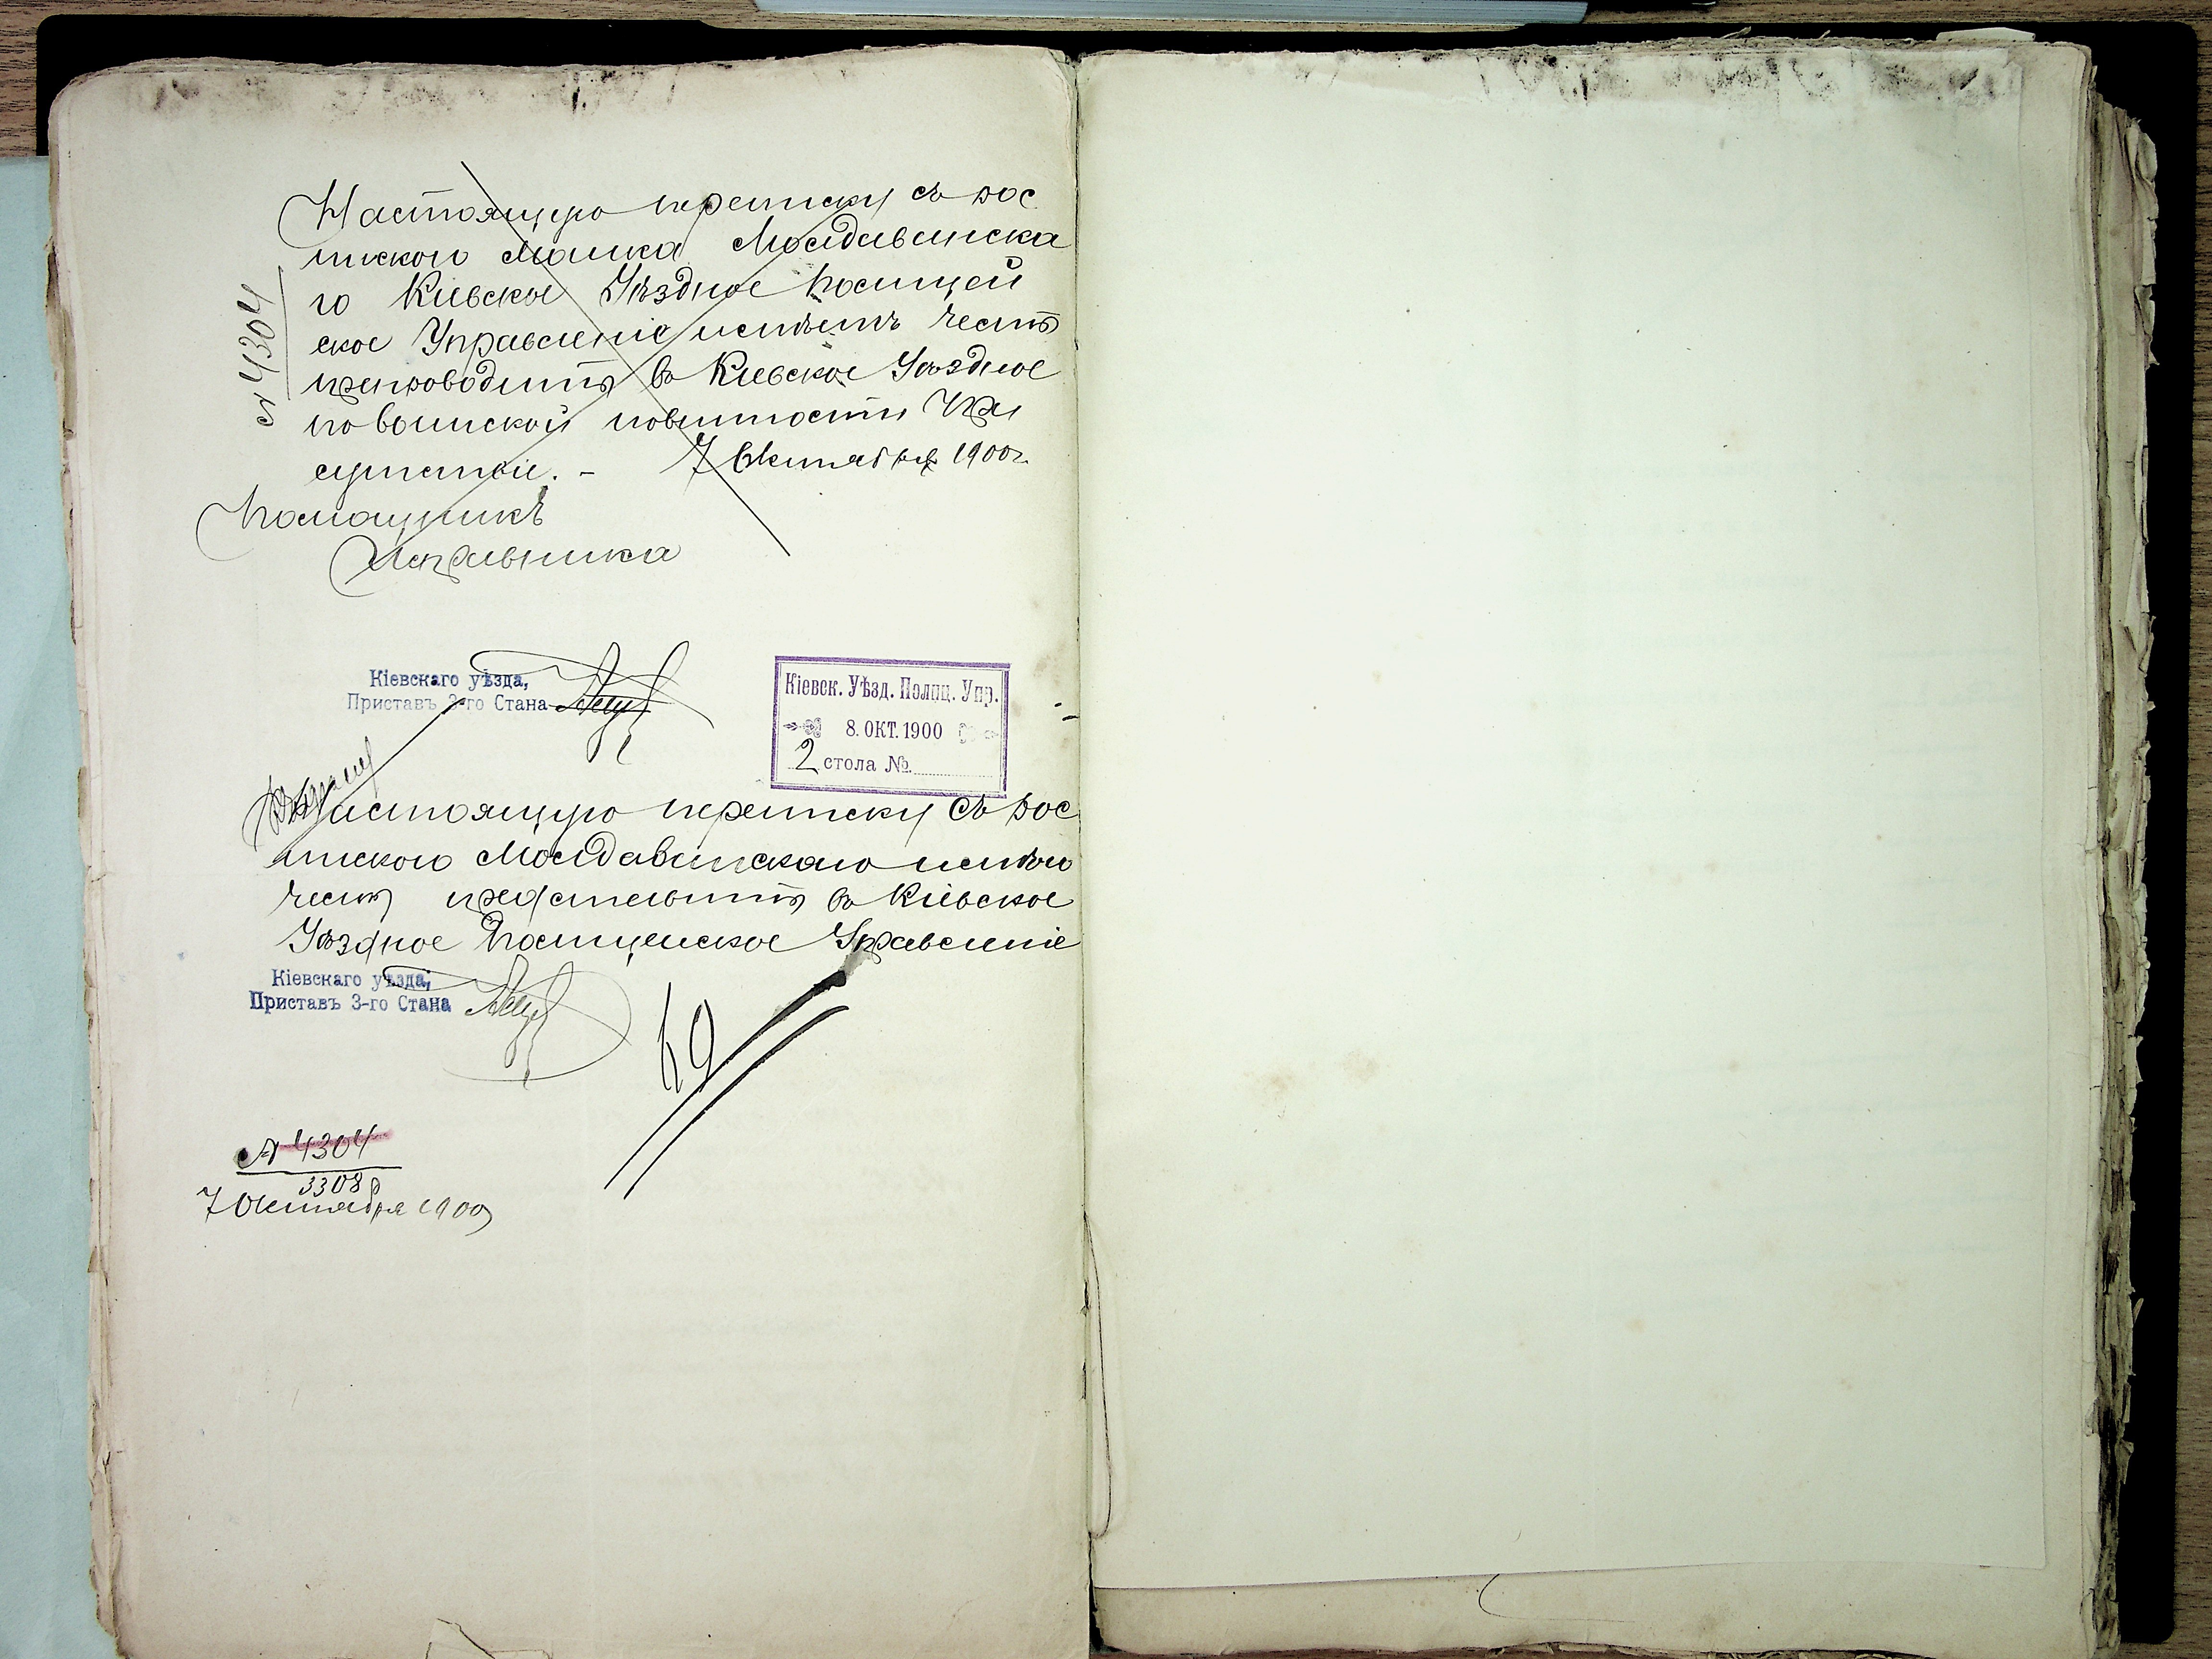 Настоящую переписку съ рос
пискою Мошка Молдаванска
го Кіевское Уѣздное Полицей
ское Управленіе имѣетъ честь
препроводить въ Кіевское Уѣздное
по воинской повинности При
сутствіе. – 7 Октября 1900 г.
№ 4304
Помощникъ
Исправника
Кіевскаго уѣзда,
Приставъ 3-го Стана
Кіевск. Уѣзд. Полиц. Упр.
8. ОКТ. 1900
2 стола №
Настоящую переписку съ рос
пискою Молдаванскаго имѣю
честь представить въ Кіевское
Уѣздное Полицейское Управленіе
Кіевскаго уѣзда,
Приставъ 3-го Стана
№ 4304
3308
7 Октября 1900